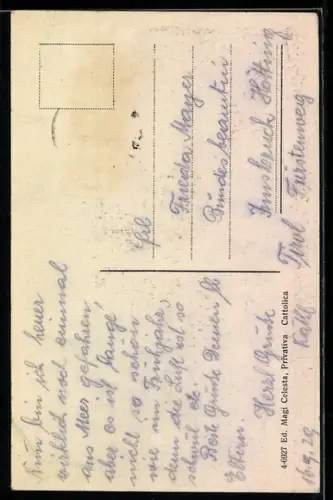 Nun bin ich heuer
wirklich noch einmal
ans Meer gefahren,
aber es ist lange
nicht so schön
wie im Frühjahr,
denn die Luft ist so
schwül etc.
Beste Grüße Deinen lb
Eltern.
Herzl. Grüße
16.9.29
Frl
Frieda Mayer
Bundesbeamtin
Innsbruck Hötting
Fürstenweg
Tirol
4-6927 Ed. Magi Celesta, Privativa Cattolica